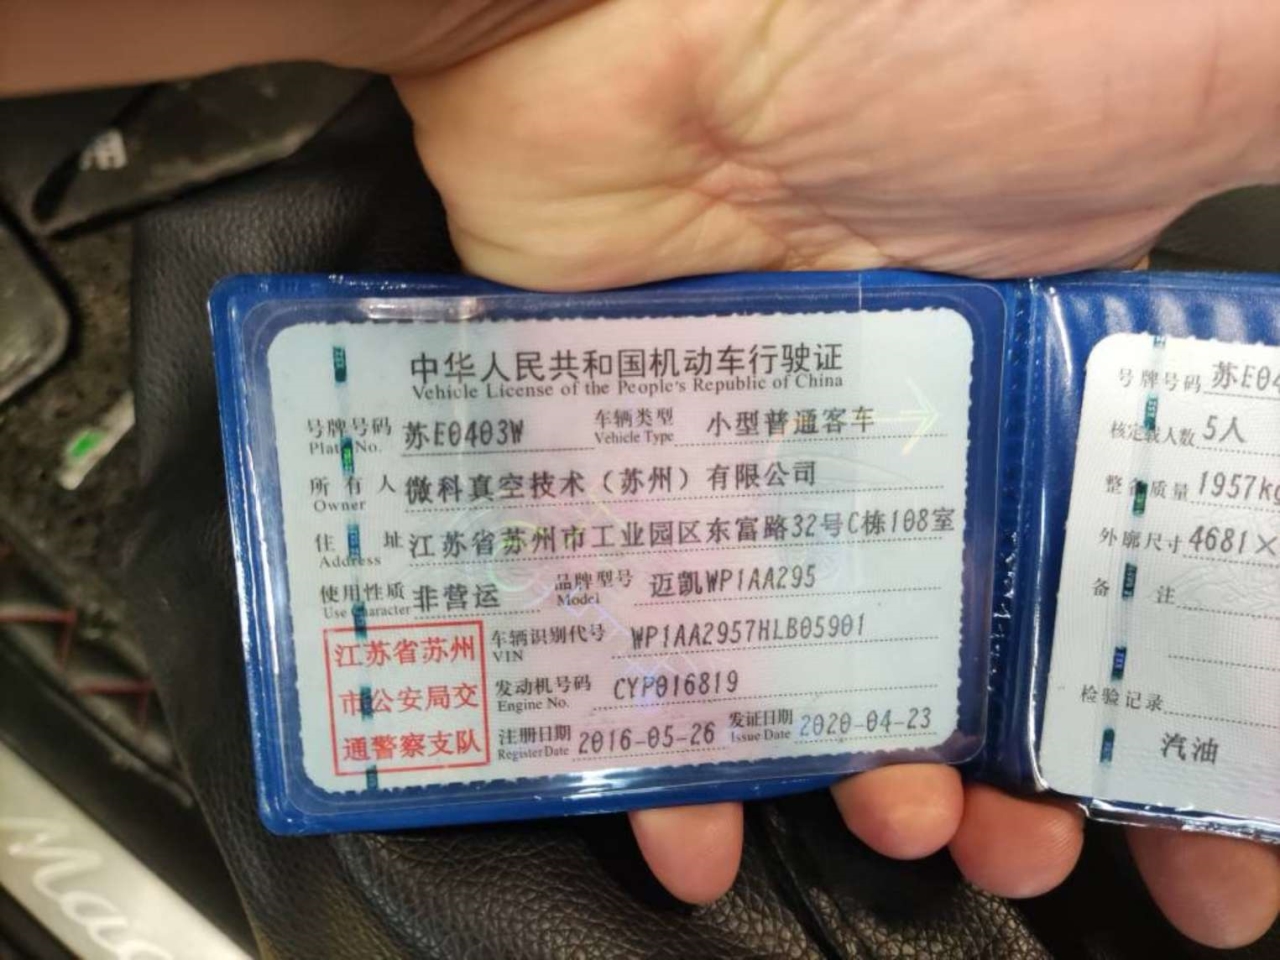 中华人民共和国机动车行驶证
Vehicle License of the People's Republic of China
号牌号码 苏E0403W 车辆类型 小型普通客车
Plate No. Vehicle Type
所有人 微科真空技术（苏州）有限公司
Owner
住址 江苏省苏州市工业园区东富路32号C栋108室
Address
使用性质 非营运 品牌型号 迈凯WP1AA295
Use Character Model
江苏省苏州
市公安局交
通警察支队
车辆识别代号 WP1AA2957HLB05901
VIN
发动机号码 CYP016819
Engine No.
注册日期 2016-05-26 发证日期 2020-04-23
Register Date Issue Date
号牌号码 苏E04
核定载人数 5人
整备质量 1957kg
外廓尺寸 4681×
备注
检验记录
汽油
Mac